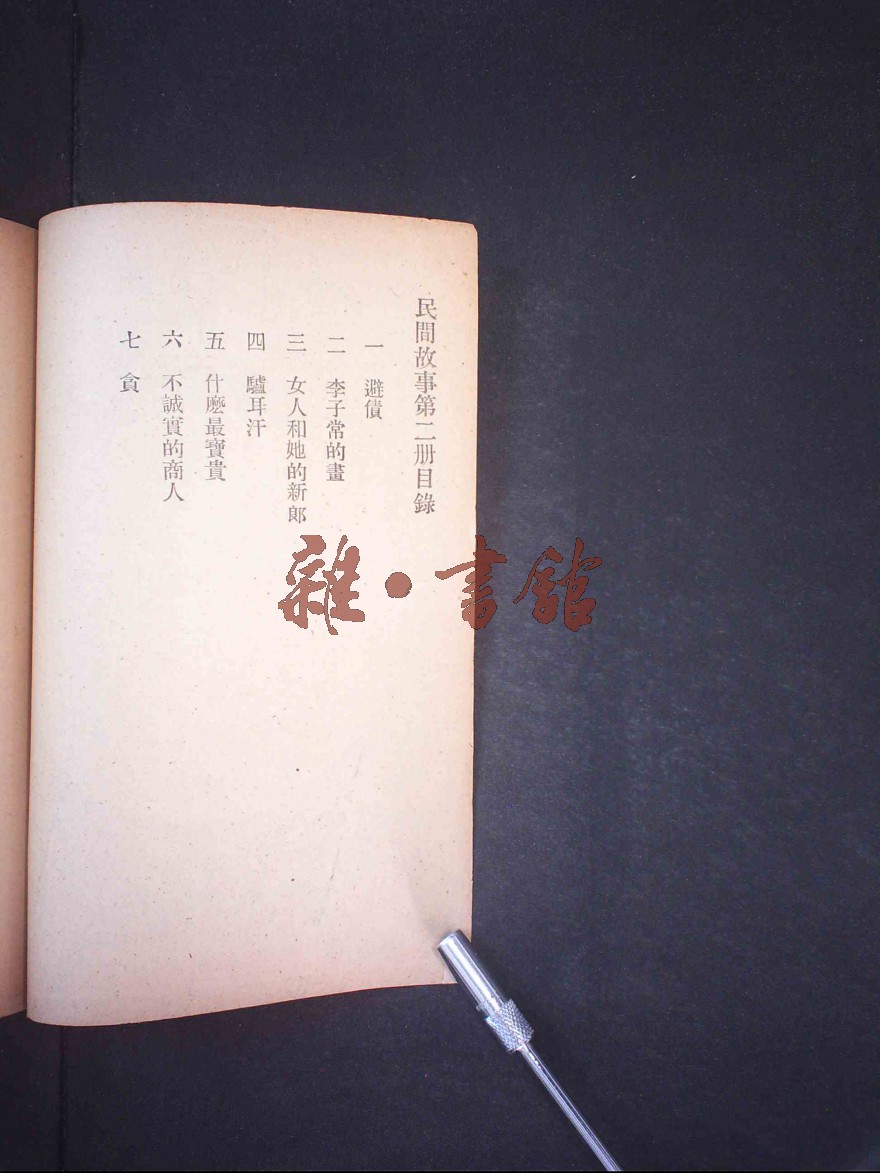 民間故事第二册目錄
一 避債
二 李子常的畫
三 女人和她的新郎
四 驢耳汗
五 什麽最寶貴
六 不誠實的商人
七 貪
雜·書館